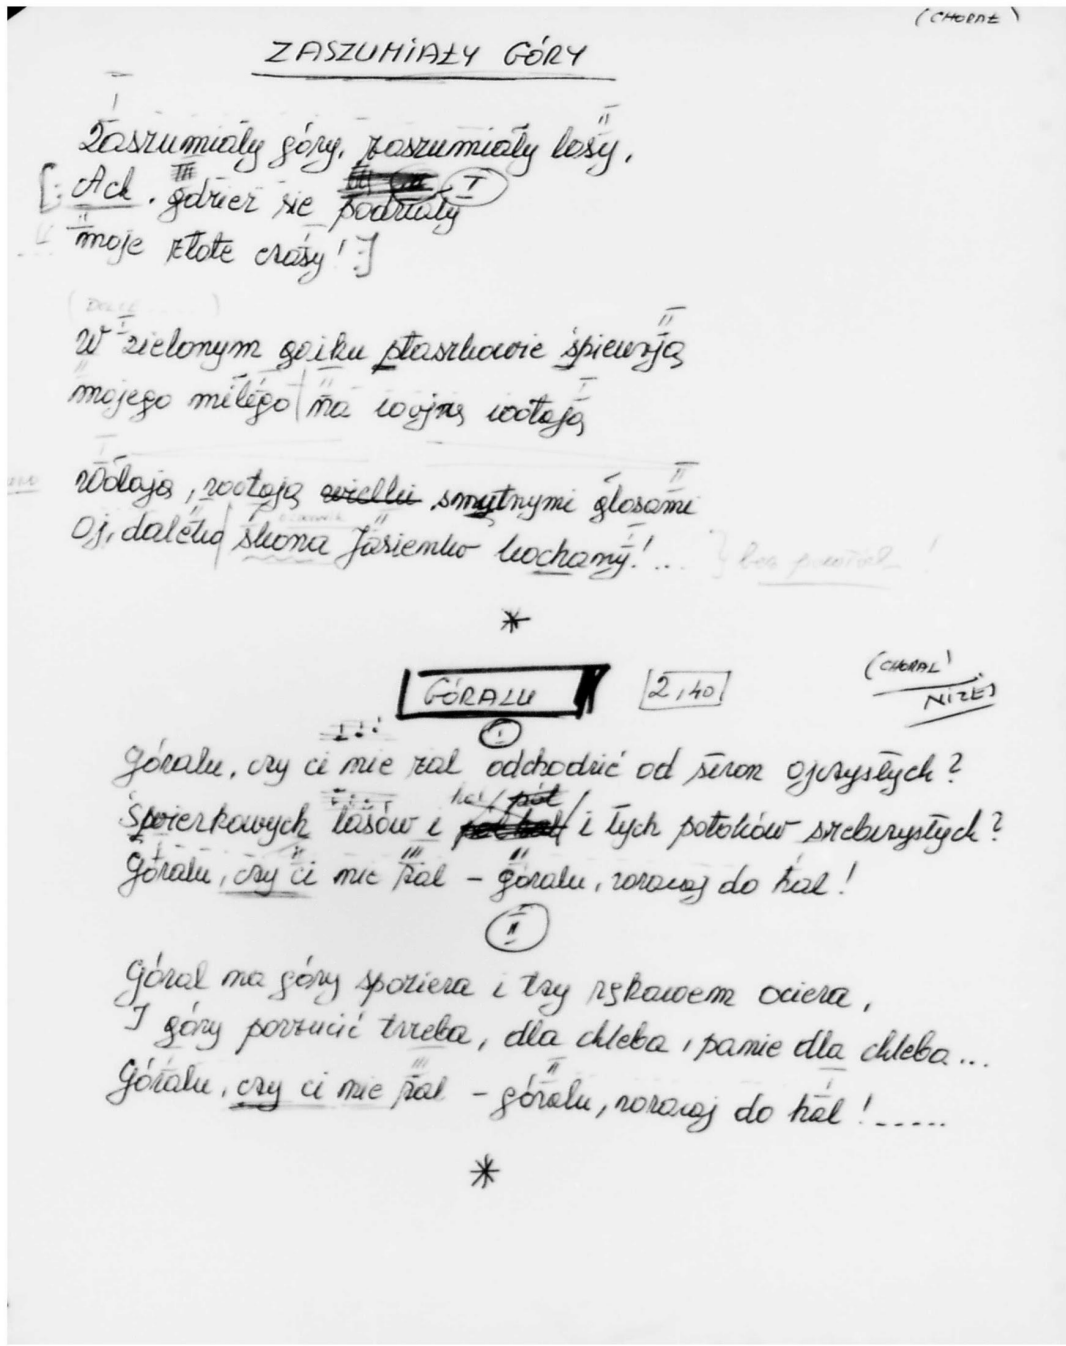 (CHORAŁ)
ZASZUMIAŁY GÓRY
I II
Zaszumiały góry, zaszumiały lasy,
III I
[: Ach, gdzież się podziały
II I
moje złote czasy! :]
I II
W zielonym gaiku ptaszkowie śpiewają
II II I
mojego miłego na wojnę wołają
I II
Wołają, wołają wielki smutnymi głosami
II I
Oj, daleko skona Jasieńko kochany!... } bez powtórk !
*
GÓRALU 2,40 (CHORAL)
NIŻEJ
I
Góralu, czy ci nie żal odchodzić od stron ojczystych?
hal/pól
Świerkowych lasów i pól hal i tych potoków srebrzystych?
I II III II I
Góralu, czy ci nie żal - góralu, wracaj do hal!
II
Góral na góry spoziera i łzy rękawem ociera,
I góry porzucić trzeba, dla chleba, panie dla chleba...
III II I
Góralu, czy ci nie żal - góralu, wracaj do hal!.....
*